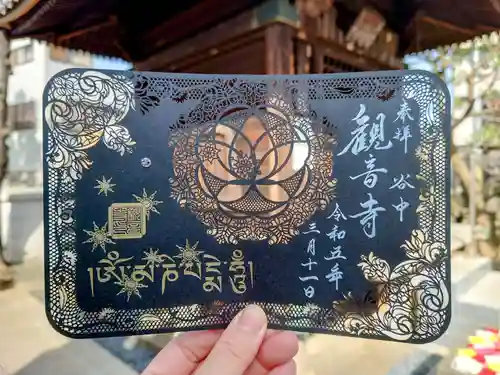 奉拝 谷中
觀音寺
令和五年
三月十一日
ཨོཾ་མ་ཎི་པདྨེ་ཧཱུྃ